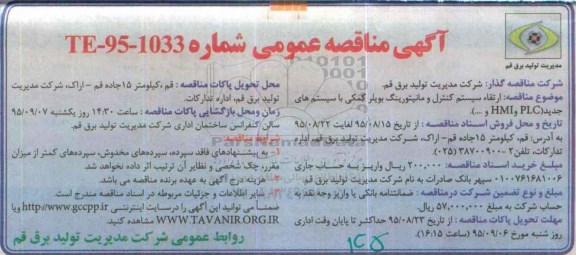 آگهی مناقصه عمومی شماره TE-95-1033
مدیریت تولید برق قم
شرکت مناقصه گذار: شرکت مدیریت تولید برق قم.
موضوع مناقصه: ارتقاء سیستم کنترل و مانیتورینگ بویلر کمکی با سیستم های
جدید(PLC و HMI و ...).
تاریخ و محل فروش اسناد مناقصه: از تاریخ ۹۵/۰۸/۱۵ لغایت ۹۵/۰۸/۲۲
به آدرس: قم، کیلومتر ۱۵جاده قم- اراک، شرکت مدیریت تولید برق قم، امور
تدارکات. تلفن: ۲-۳۸۷۰۰۹۰۰ (۰۲۵)
مبلغ خرید اسناد مناقصه: ۲۰۰,۰۰۰ ریال واریز به حساب جاری
۰۱۰۰۷۶۱۶۸۱۰۰۶ سپهر بانک صادرات به نام شرکت مدیریت تولید برق قم.
مبلغ و نوع تضمین شرکت در مناقصه: ضمانتنامه بانکی یا واریز وجه نقد به
حساب شرکت به مبلغ ۵۷,۰۰۰,۰۰۰ ریال.
مهلت تحویل پاکات مناقصه: از تاریخ ۹۵/۰۸/۲۳ حداکثر تا پایان وقت اداری
روز شنبه مورخ ۹۵/۰۹/۰۶ (ساعت ۱۶:۱۵)
محل تحویل پاکات مناقصه: قم ،کیلومتر ۱۵جاده قم - اراک، شرکت مدیریت
تولید برق قم، اداره تدارکات.
زمان و محل بازگشایی پاکات مناقصه: ساعت ۱۴:۳۰ روز یکشنبه ۹۵/۰۹/۰۷
سالن کنفرانس ساختمان اداری شرکت مدیریت تولید برق قم.
شرایط مناقصه:
۱- به پیشنهادهای فاقد سپرده، سپرده‌های مخدوش، سپرده‌های کمتر از میزان
مقرر، چک شخصی و نظایر آن ترتیب اثر داده نخواهد شد.
۲- هزینه درج آگهی به عهده برنده مناقصه می باشد.
۳- سایر اطلاعات و جزئیات مربوطه در اسناد مناقصه مندرج است.
ضمنا می توانید این آگهی را در سایت اینترنتی http://www.gccpp.ir ویا
WWW.TAVANIR.ORG.IR مشاهده کنید.
روابط عمومی شرکت مدیریت تولید برق قم